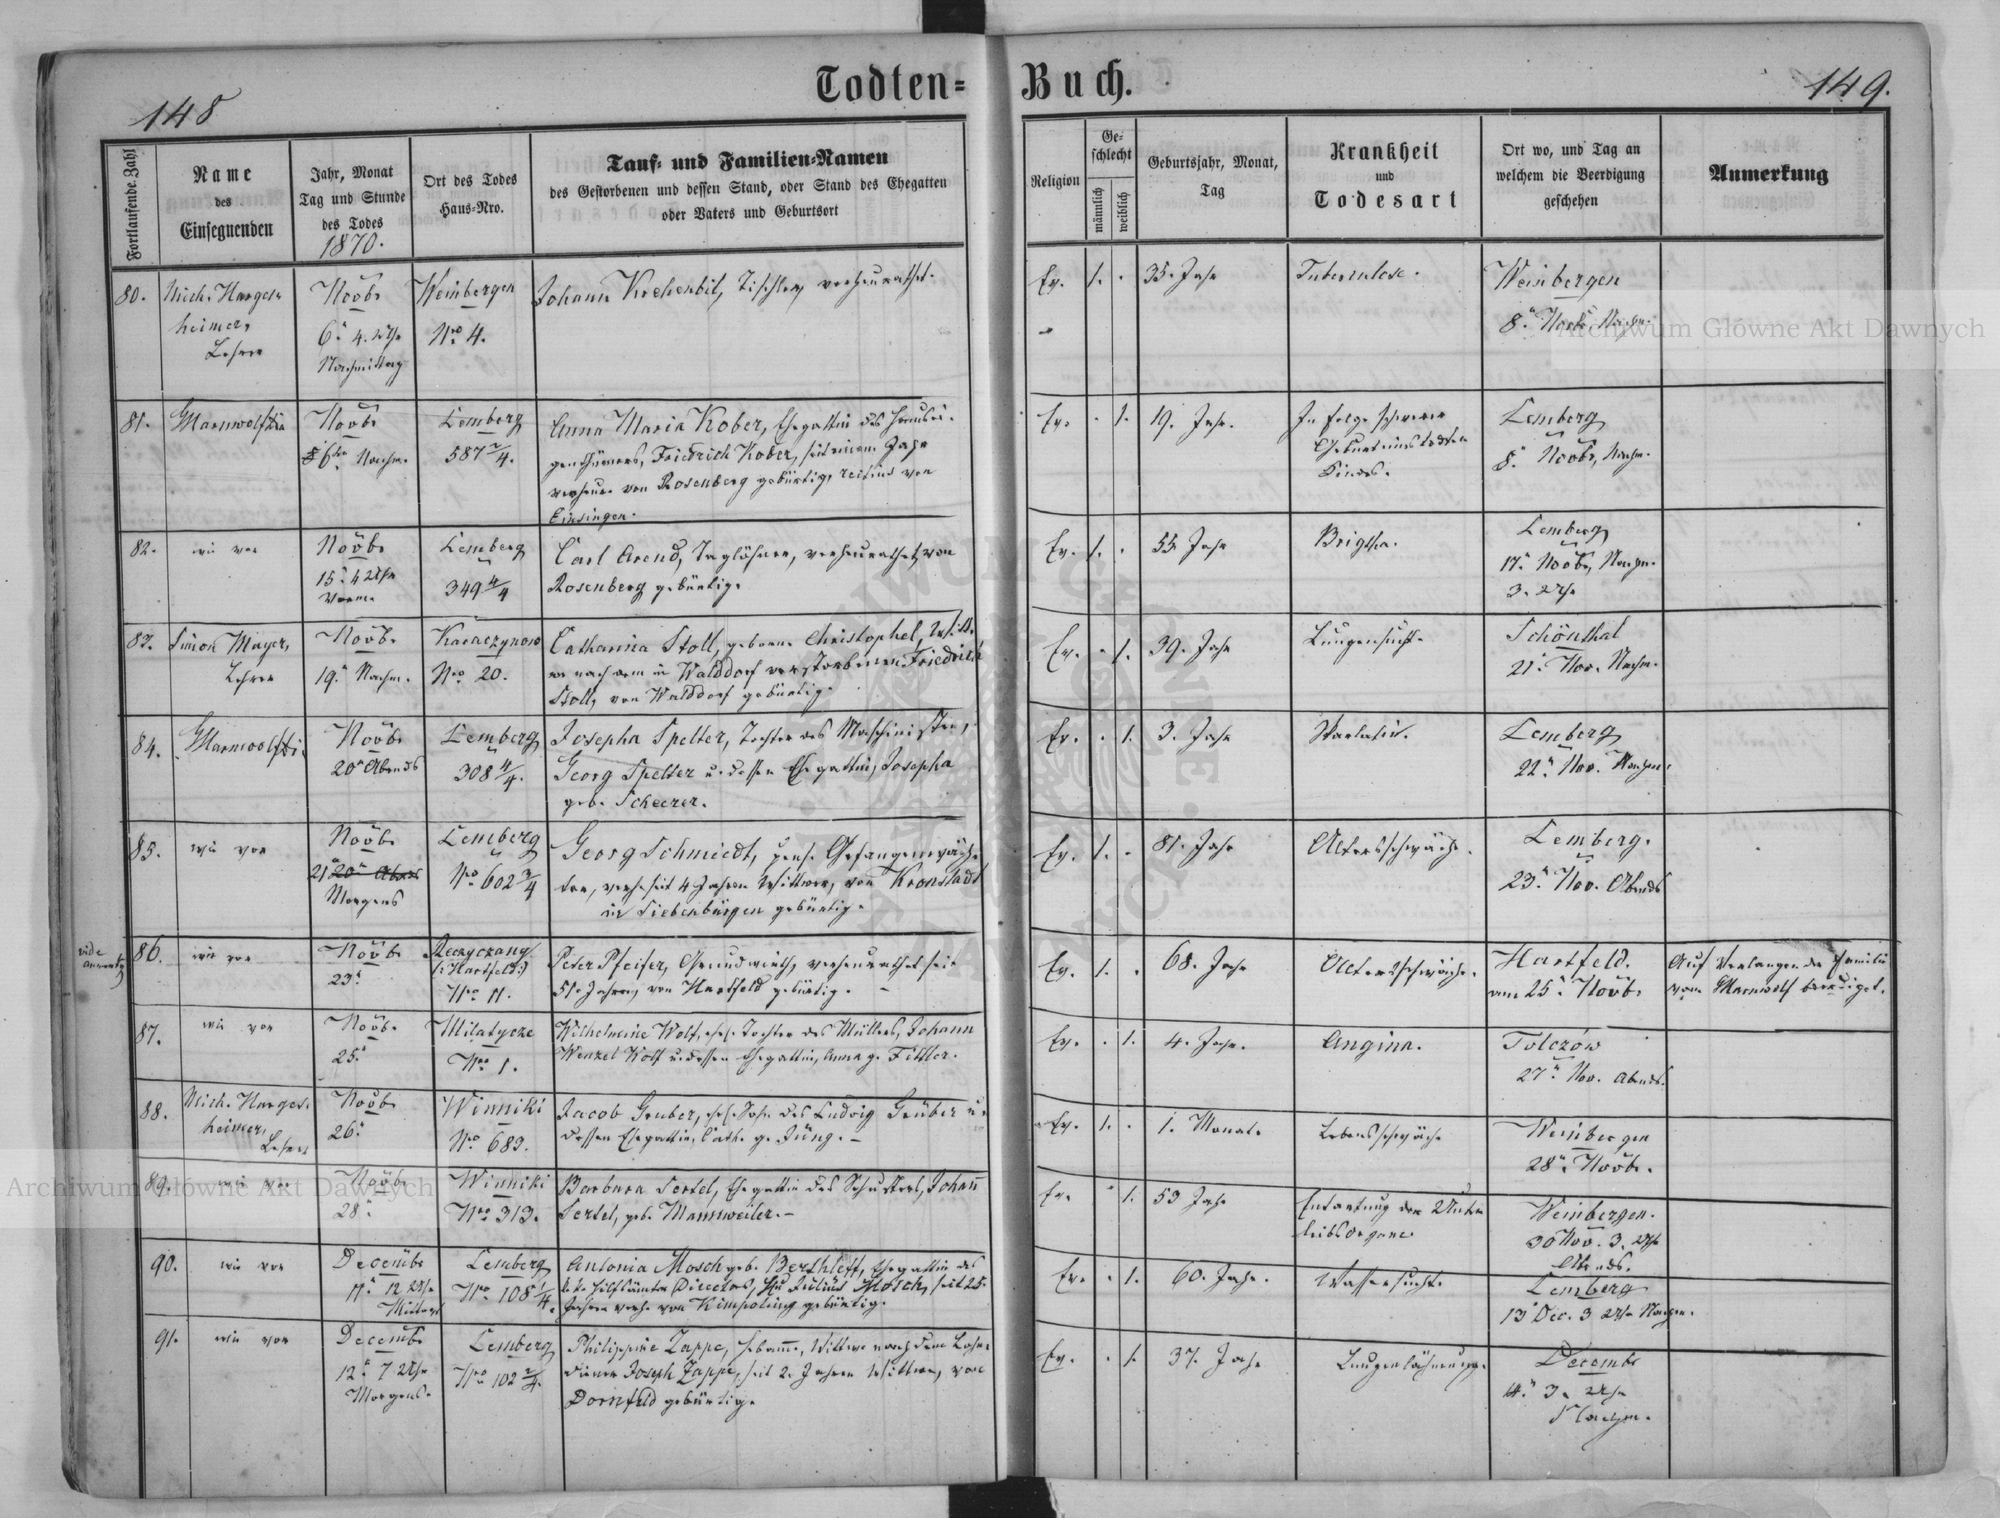 Todten=Buch.
148
149.
Fortlaufende Zahl
Name
des
Einsegnenden
Jahr, Monat
Tag und Stunde
des Todes
1870.
Ort des Todes
Haus-Nro.
Tauf- und Familien-Namen
des Gestorbenen und dessen Stand, oder Stand des Ehegatten
oder Vaters und Geburtsort
Religion
Ge-
schlecht
männlich
weiblich
Geburtsjahr, Monat,
Tag
Krankheit
und
Todesart
Ort wo, und Tag an
welchem die Beerdigung
geschehen
Anmerkung
80.
Mich. Harges-
heimer,
Lehrer
Novb.
6. 4. Uhr
Nachmittag
Weinbergen
Nro 4.
Johann Krehenbil, Tischler, verheurathet.
Ev. 1. 35. Jahr
Tuberculose.
Weinbergen
8. Novb. Nachm.
81.
Novb.
6 Nachm.
Lemberg
587 2/4.
Anna Maria Kober, Ehegattin des Hausei-
genthümers, Friedrich Kober, seit einem Jahre
verheur. von Rosenberg gebürtig,
Einsingen.
Ev. 1. 19. Jahr.
In Folge schwerer
Geburt eines todten
Kindes.
Lemberg
8. Novb., Nachm.
82.
wie vor
Novb.
15. 4 Uhr
Vorm.
Lemberg
349 4/4
Carl Arend, Taglöhner, verheurathet, von
Rosenberg gebürtig.
Ev. 1. 55 Jahr
Brigtha.
Lemberg
17. Novb., Nachm.
3. Uhr
83.
Simon Mayer,
Lehrer
Novb.
19. Nachm.
Karaczynow
Nro 20.
Catharina Stoll, geborne Christophel, Witt-
we nach dem in Walddorf verstorbenen Friedrich
Stoll, von Walddorf gebürtig.
Ev. 1. 39. Jahr
Lungensucht.
Schönthal
21. Nov. Nachm.
84.
Novb.
20. Abends
Lemberg
308 4/4.
Josepha Spelter, Tochter des Maschinisten,
Georg Spelter u. dessen Ehegattin, Josepha
geb. Scheerer.
Ev. 1. 3. Jahr
Skarlatin.
Lemberg
22. Nov. Nachm.
85.
wie vor
Novb.
21. 20. Abends
Morgens
Lemberg
Nro 602 3/4
Georg Schmiedt, pens. Gefangenwäch-
ter, verh. seit 4 Jahren Wittwer, von Kronstadt
in Siebenbürgen gebürtig.
Ev. 1. 81. Jahr
Altersschwäche.
Lemberg.
23. Nov. Abends
vide
86.
wie vor
Novb.
23.
Reczyczany
(: Hartfeld :)
Nro 11.
Peter Pfeifer, Grundwirth, verheurathet seit
51. Jahren, von Hartfeld gebürtig.
Ev. 1. 68. Jahr
Altersschwäche.
Hartfeld.
am 25. Novb.
Auf Verlangen der Familie
beerdiget.
87.
wie vor
Novb.
25.
Milatycze
Nro 1.
Wilhelmine Wolf, ehel. Tochter des Müllers, Johann
Wenzel Wolf u. dessen Ehegattin, Anna g. Fittler.
Ev. 1. 4. Jahr.
Angina.
Tolczow
27. Nov. Abends.
88.
Mich. Harges-
heimer,
Lehrer
Novb.
26.
Winniki
Nro 683.
Jacob Gruber, ehel. Sohn des Ludwig Gruber u.
dessen Ehegattin, Cath. g. Jüng.
Ev. 1. 1. Monat.
Lebensschwäche
Weinbergen
28. Novb.
89.
wie vor
Novb.
28.
Winniki
Nro 313.
Barbara Sertel, Ehegattin des Schusters, Johann
Sertel, geb. Mannweiler.
Ev. 1. 53 Jahr
Entartung der Unter-
leibsorgane
Weinbergen.
30 Nov. 3. Uhr
Abends.
90.
wie vor
Decemb.
11. 12 Uhr
Mittags
Lemberg
Nro 108 1/4.
Antonia Mosch geb. Berthleff, Ehegattin des
k. k. Hilfsämter Directors, Julius Mosch, seit 25.
Jahren verh. von Kimpolung gebürtig.
Ev. 1. 60. Jahr.
Wassersucht.
Lemberg
13 Dec. 3 Uhr Nachm.
91.
wie vor
Decemb.
12. 7 Uhr
Morgens.
Lemberg
Nro 102 2/4.
Philippine Zappe, Hebamme, Wittwe nach dem Lohn-
diener Joseph Zappe, seit 2. Jahren Wittwe, von
Dornfeld gebürtig.
Ev. 1. 37. Jahr
Lungenlähmung.
Decemb.
14. 3. Uhr
Nachm.
Archiwum Główne Akt Dawnych
Archiwum Główne Akt Dawnych